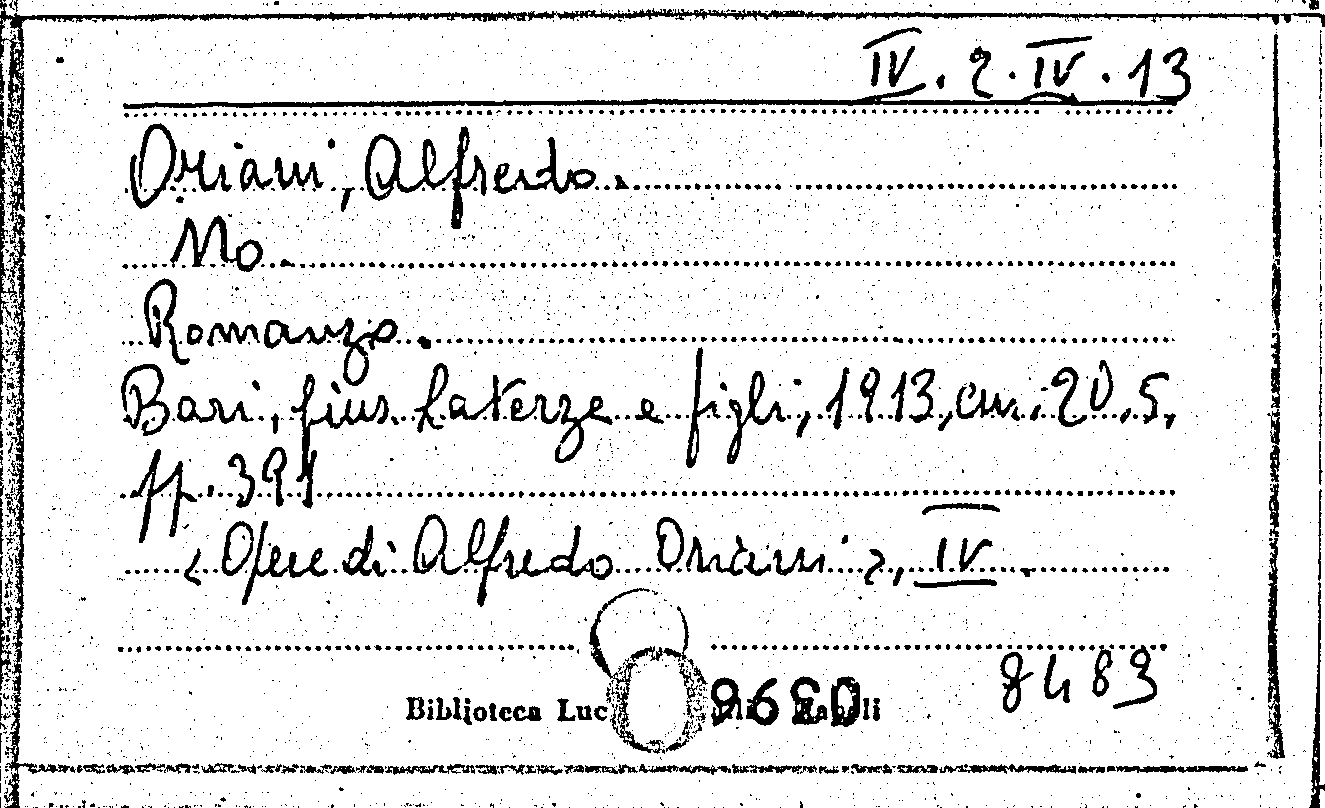 IV. 2. IV. 13
Oriani, Alfredo.
No.
Romanzo.
Bari, Gius. Laterza e figli, 1913, cm. 20,5,
pp. 391
<Opere di Alfredo Oriani>, IV.
8483
Biblioteca Luc